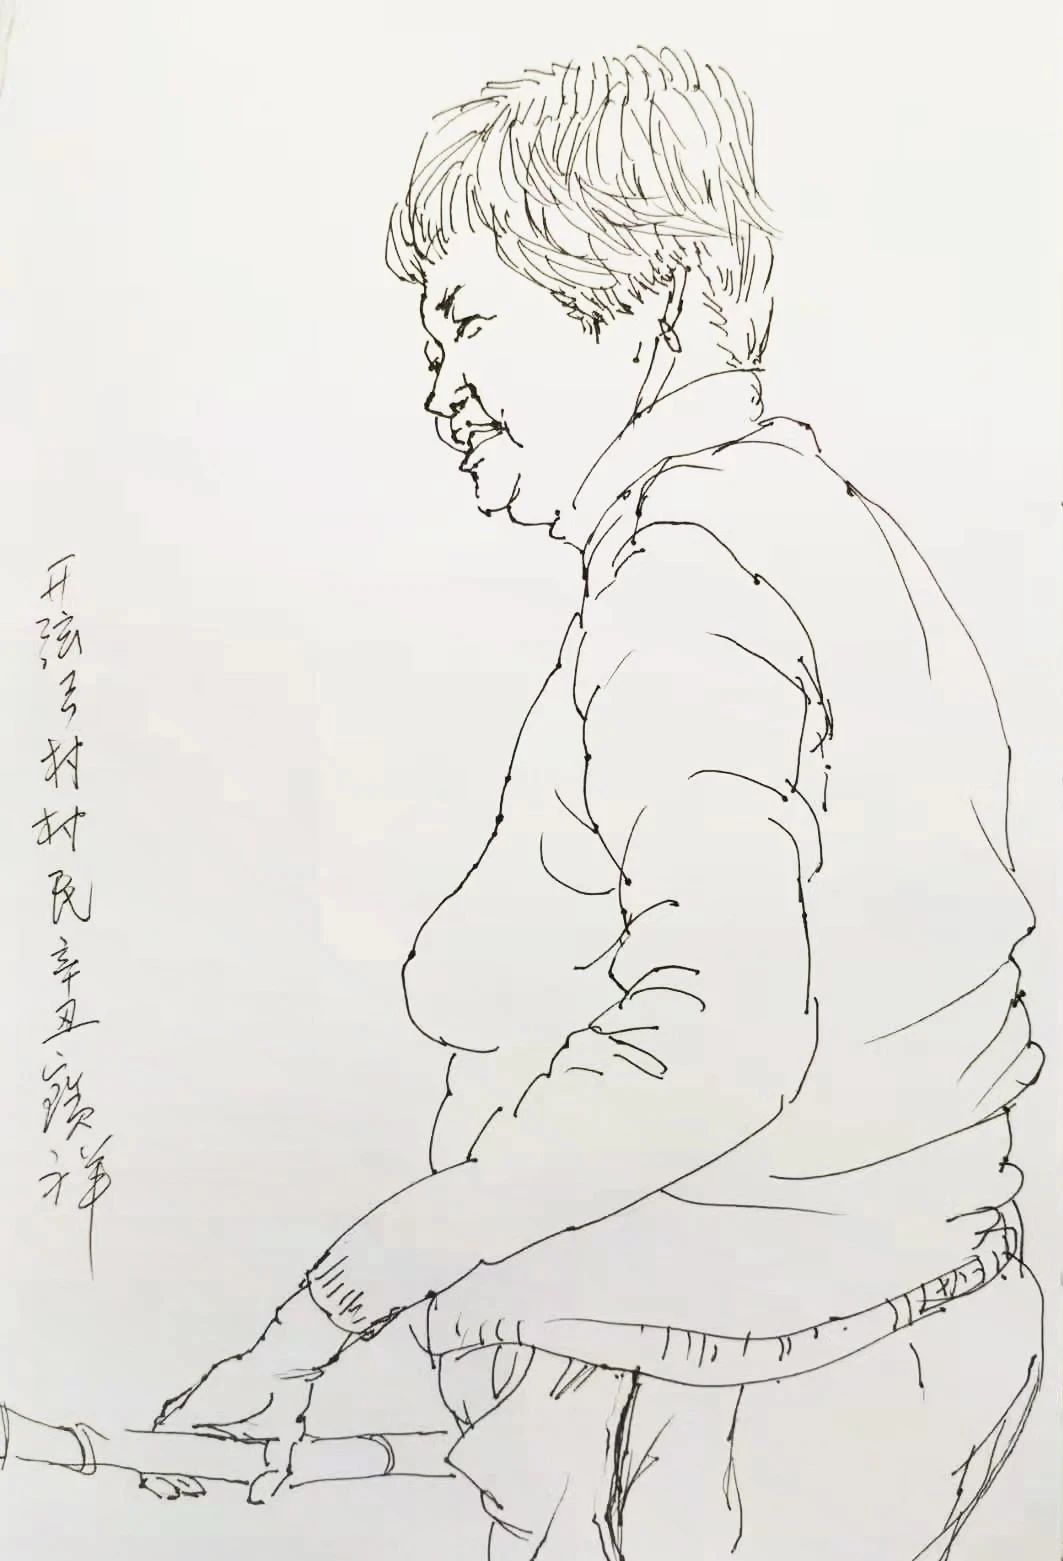 开弦弓村村民辛丑寶祥